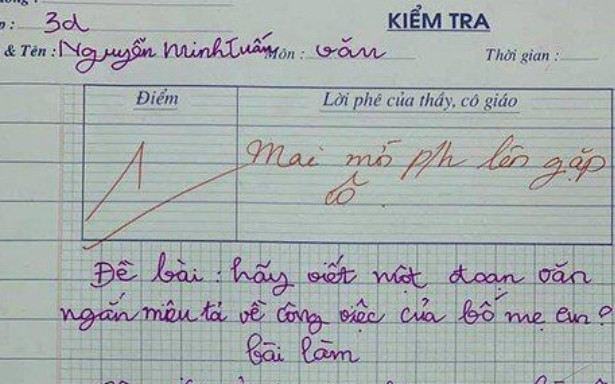 KIỂM TRA
: 3d
& Tên : Nguyễn Minh Tuấn Môn : văn Thời gian :
Điểm Lời phê của thầy, cô giáo
1 Mai mở p/h lên gặp
cô
Đề bài : hãy viết một đoạn văn
ngắn miêu tả về công việc của bố mẹ em?
bài làm